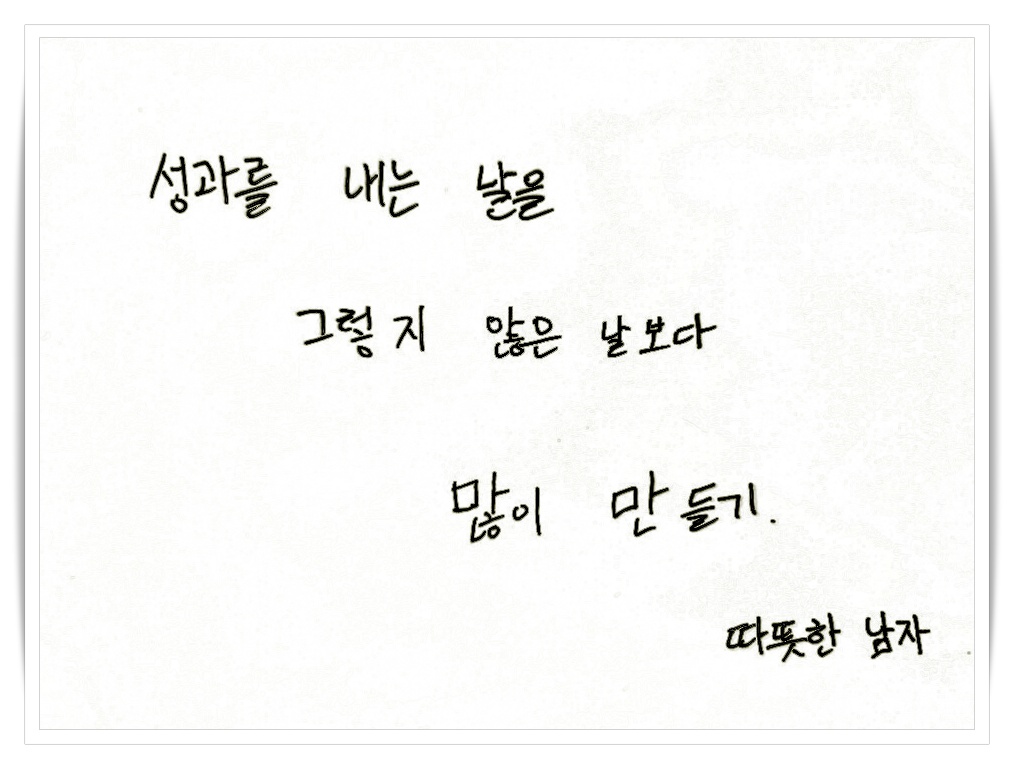 성과를 내는 날을
그렇지 않은 날보다
많이 만들기.
따뜻한 남자